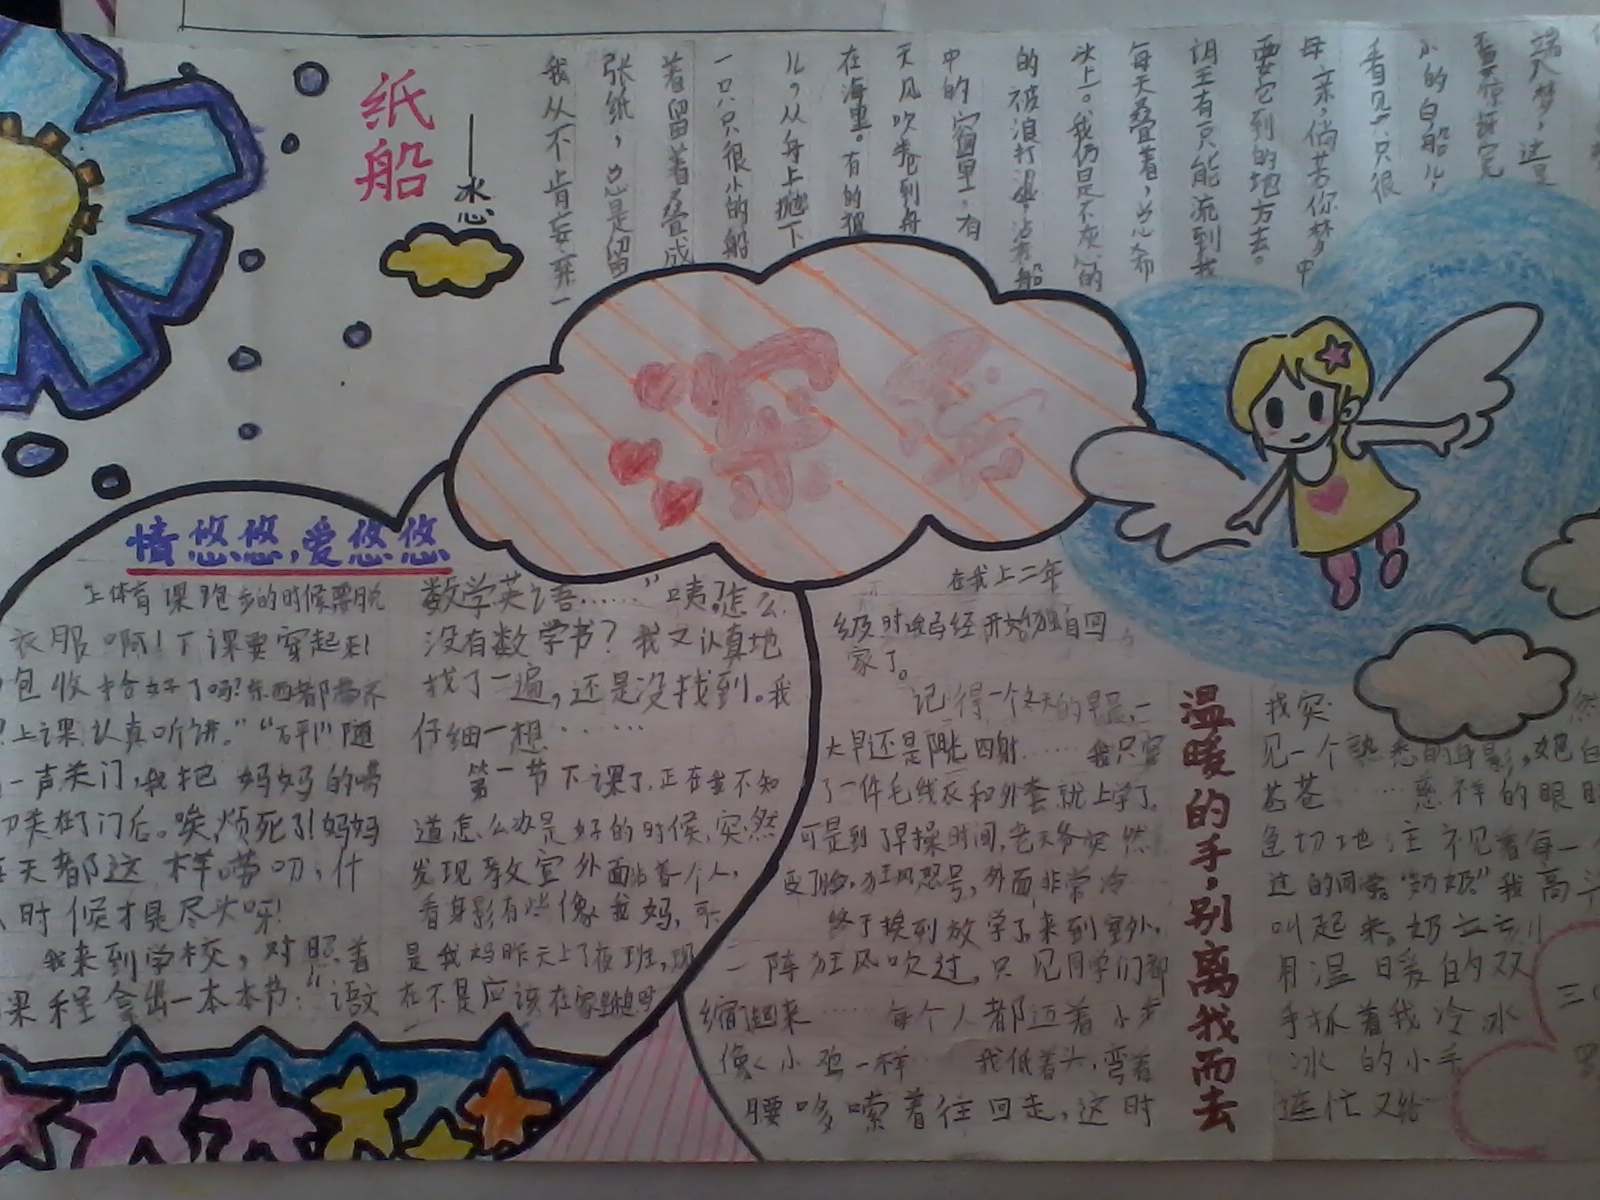 纸船
——冰心
我从不肯妄弃一
张纸,总是留
着留着叠成
一只只很小的船
儿。从舟上抛下
在海里。有的被
天风吹卷到舟
中的窗里。有
的被浪打湿,沾在船
头上。我仍是不灰心的
每天叠着,总希
望有一只能流到我
要它到的地方去。
母亲,倘若你梦中
看见一只很
小的白船儿,
不要惊讶它
端入梦,这是
深
情悠悠,爱悠悠
上体育课跑步的时候要脱
衣服啊!下课要穿起来!
包收拾好了吗?东西都带齐
上课认真听讲。”“砰!”随
一声关门,我把妈妈的唠
叨关在了门后。唉,烦死了!妈妈
每天都这样唠叨,什
么时候才是尽头呀!
我来到学校,对照着
课程拿出一本本书:“语文
数学英语……”咦?怎么
没有数学书?我又认真地
找了一遍,还是没找到。我
仔细一想……
第一节下课了,正在我不知
道怎么办是好的时候,突然
发现教室外面站着一个人,
看身影有些像我妈,可
是我妈昨天上了夜班,现
在不是应该在家里
在我上二年
级时 开始独自回
家了。
记得一个冬天的早晨,一
大早还是阳光四射……我只穿
了一件毛线衣和外套就上学了。
可是到了早操时间,老天爷突然
变了脸,狂风怒号,外面非常冷
终于挨到放学了,来到室外,
一阵狂风吹过,只见同学们都
缩 起来……每个人都迈着小步
像小鸡一样 我低着头,弯着
腰哆嗦着往回走,这时
温暖的手,别离我而去
我突 然
见一个熟悉的身影,她白
苍苍……慈祥的眼
急切地注视着每一个
过的同学“奶奶”我高
叫起来。奶 立刻
用温暖的双
手抓着我冷冰
冰的小手
连忙又给